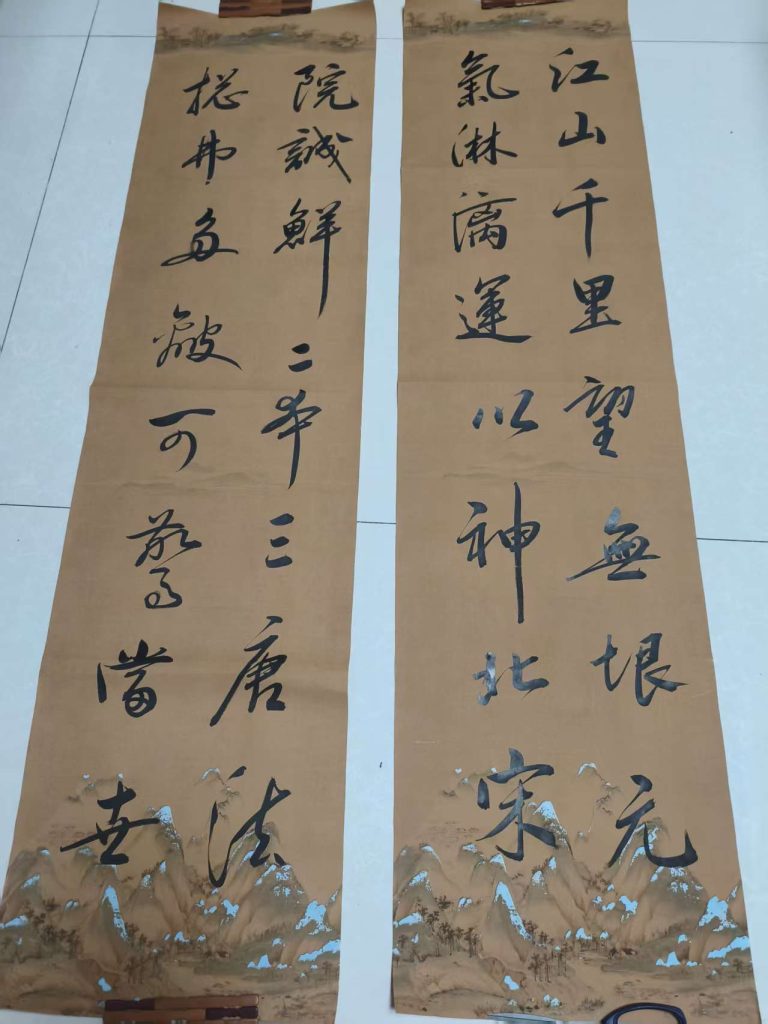 江山千里望無垠元
氣淋漓運以神北宋
院誠鮮二本三唐法
摠弗多皴可驚當世